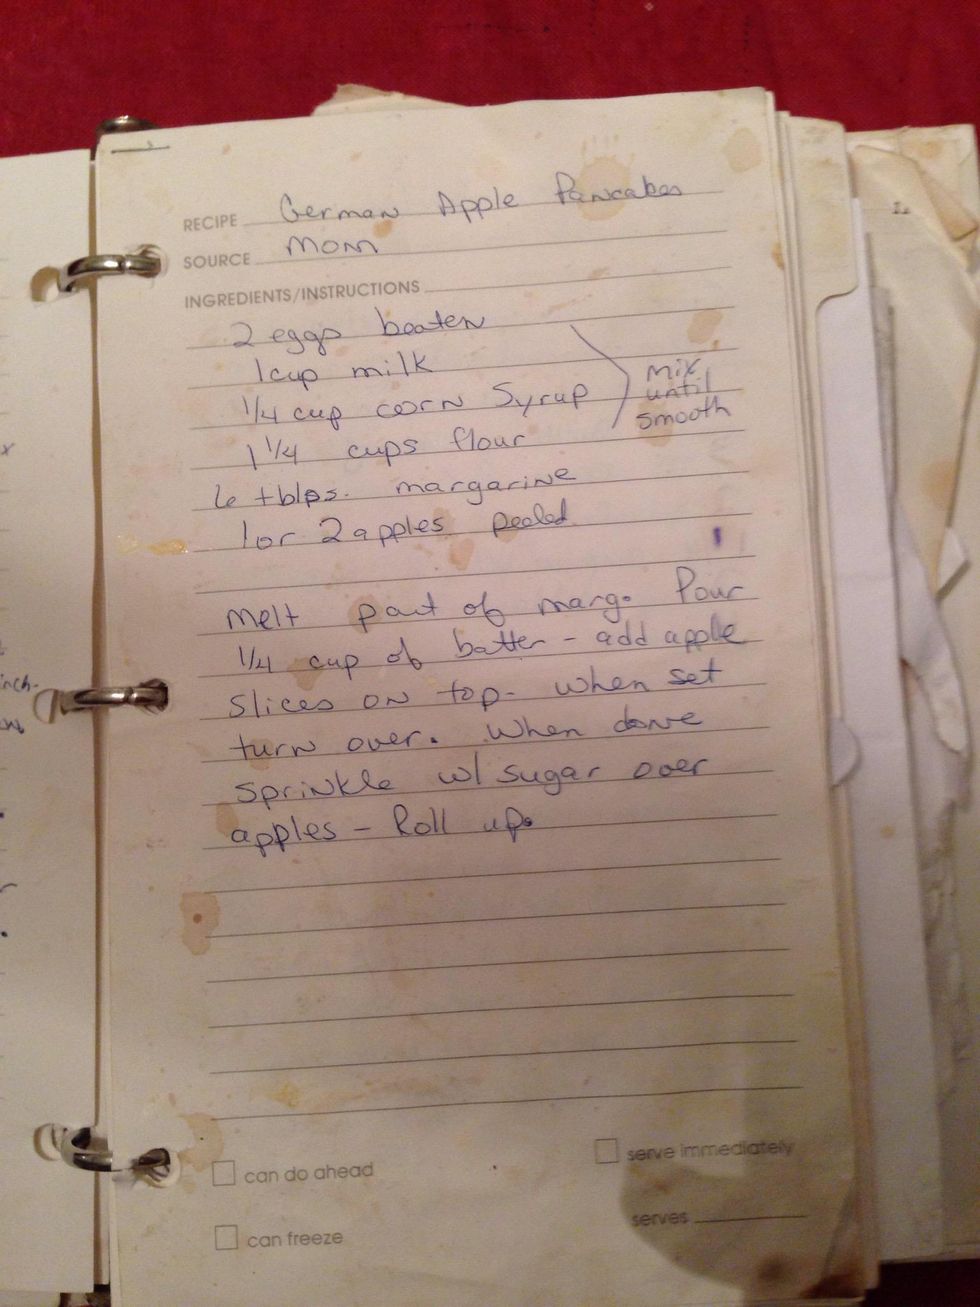 RECIPE German Apple Pancakes
SOURCE Mom
INGREDIENTS/INSTRUCTIONS
2 eggs beaten
1 cup milk
1/4 cup corn Syrup
1 1/4 cups flour
mix
until
smooth
6 tblps. margarine
1 or 2 apples peeled
Melt part of marg. Pour
1/4 cup of batter - add apple
slices on top - when set
turn over. When done
sprinkle w/ sugar over
apples - Roll up.
can do ahead
serve immediately
can freeze
serves
inch-